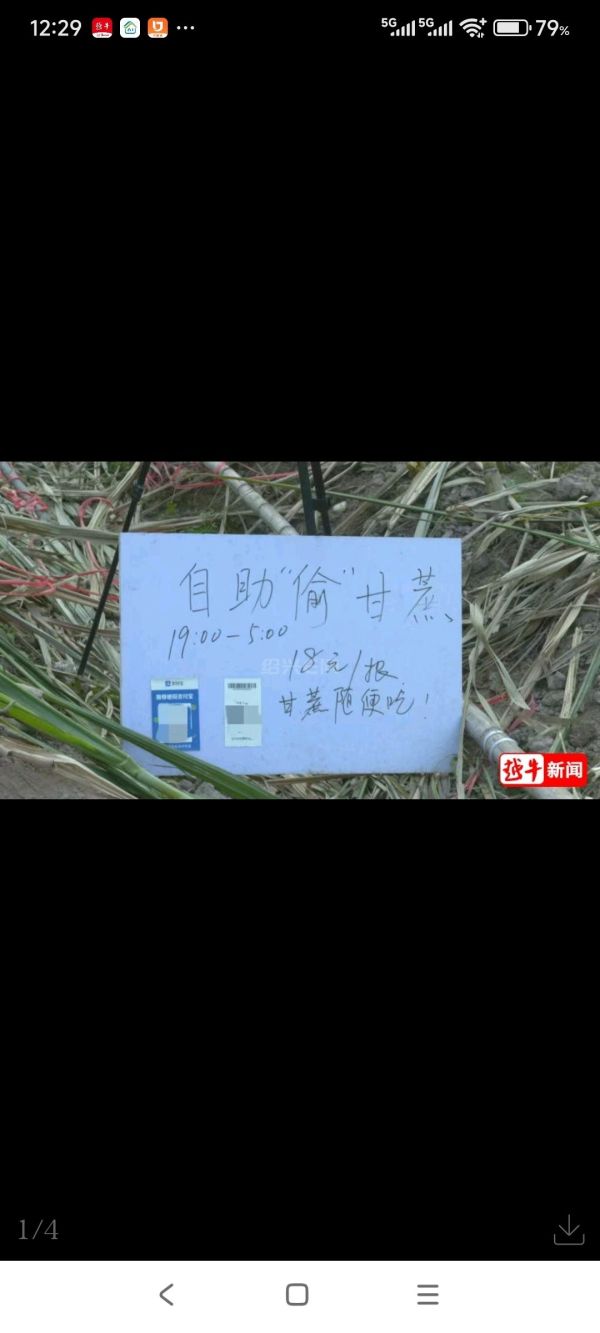 12:29
5G 5G 79%
自助“偷”甘蔗
19:00-5:00
18元/报
甘蔗随便吃！
支付宝
越牛新闻
1/4